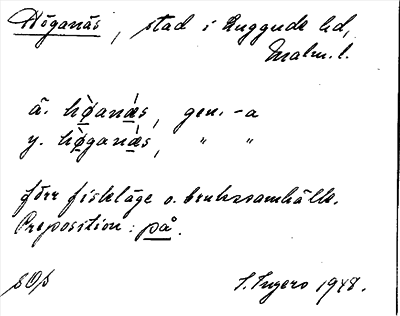 Höganäs, stad i Luggude hd,
Malm. l.
ä. hø̀anæ̀s, gen. -a
y. hø̀ganæ̀s, " "
förr fiskeläge o. brukssamhälle.
Preposition: på.
S. Ingers 1948.